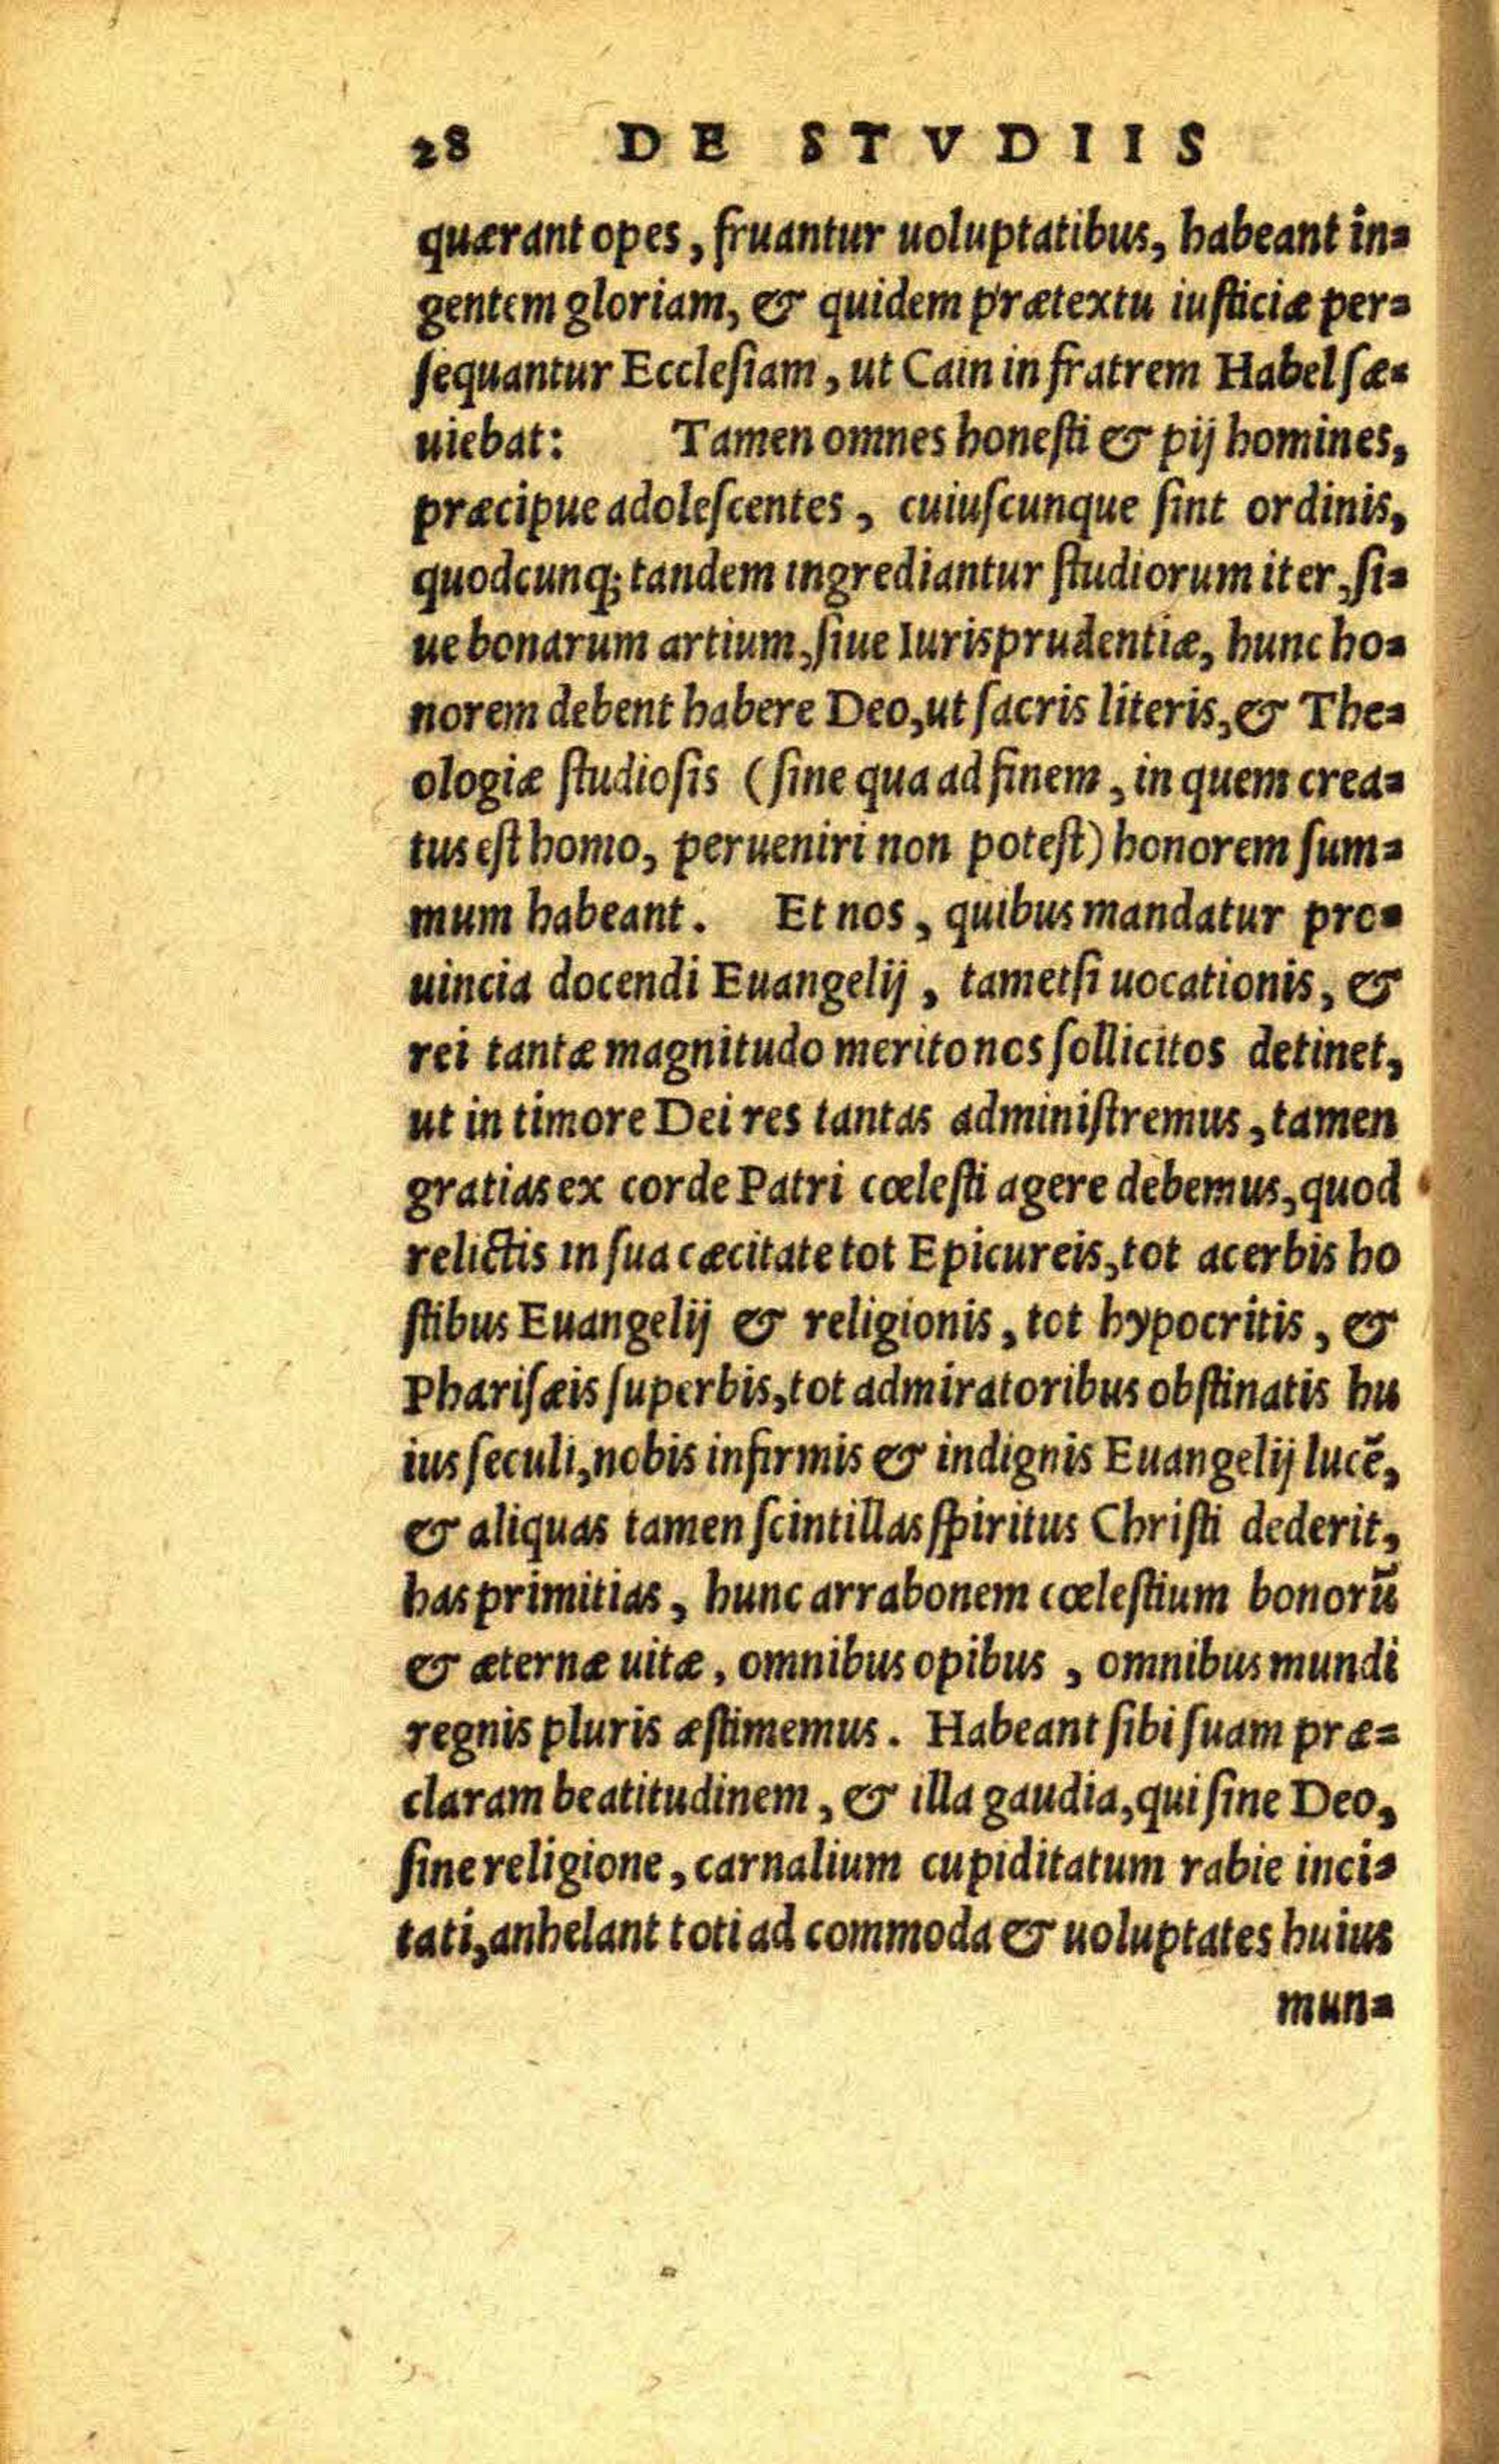 28 DE STVDIIS
quærant opes, fruantur uoluptatibus, habeant in-
gentem gloriam, & quidem prætextu iusticiæ per-
sequantur Ecclesiam, ut Cain in fratrem Habel sæ-
uiebat: Tamen omnes honesti & pij homines,
præcipue adolescentes, cuiuscunque sint ordinis,
quodcunq; tandem ingrediantur studiorum iter, si-
ue bonarum artium, siue Iurisprudentiæ, hunc ho-
norem debent habere Deo, ut sacris literis, & The-
ologiæ studiosis (sine qua ad finem, in quem crea-
tus est homo, perueniri non potest) honorem sum-
mum habeant. Et nos, quibus mandatur pro-
uincia docendi Euangelij, tametsi uocationis, &
rei tantæ magnitudo merito nos sollicitos detinet,
ut in timore Dei res tantas administremus, tamen
gratias ex corde Patri cœlesti agere debemus, quod
relictis in sua cæcitate tot Epicureis, tot acerbis ho
stibus Euangelij & religionis, tot hypocritis, &
Pharisæis superbis, tot admiratoribus obstinatis hu
ius seculi, nobis infirmis & indignis Euangelij lucẽ,
& aliquas tamen scintillas spiritus Christi dederit,
has primitias, hunc arrabonem cœlestium bonorũ
& æternæ uitæ, omnibus opibus, omnibus mundi
regnis pluris æstimemus. Habeant sibi suam præ-
claram beatitudinem, & illa gaudia, qui sine Deo,
sine religione, carnalium cupiditatum rabie inci-
tati, anhelant toti ad commoda & uoluptates huius
mun-